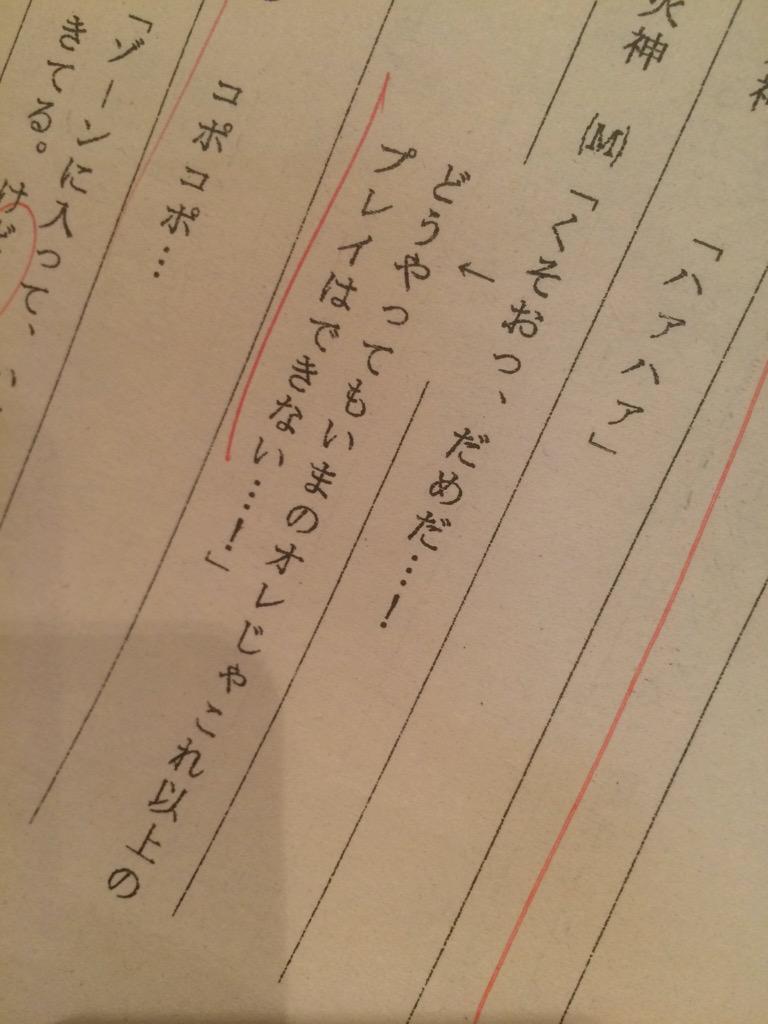 「ハァハァ」
火神 (M)「くそおっ、だめだ…！
←
どうやってもいまのオレじゃこれ以上の
プレイはできない…！」
コポコポ…
「ゾーンに入って、
きてる。